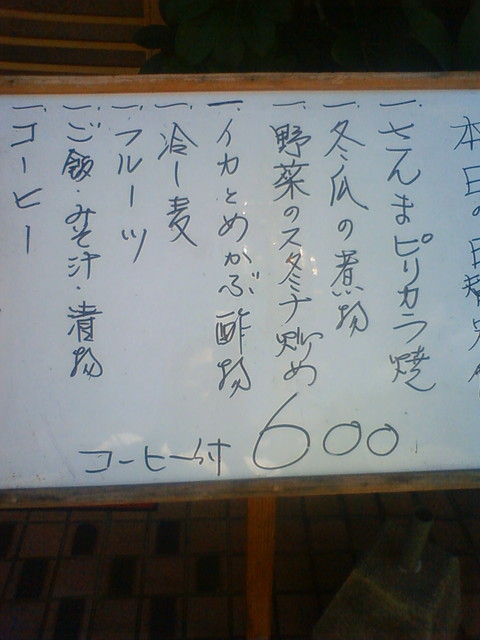 本日の日替
一、さんまピリカラ焼
一、冬瓜の煮物
一、野菜のスタミナ炒め
一、イカとめかぶ酢物
一、冷し麦
一、フルーツ
一、ご飯・みそ汁・漬物
一、コーヒー
コーヒー付 600